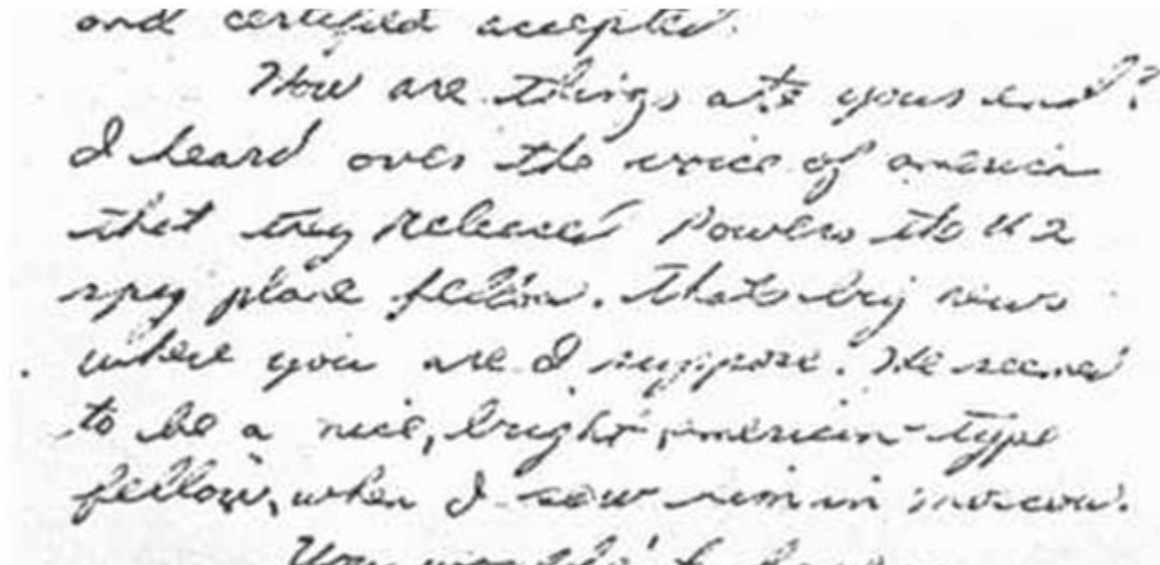 and certified accepted.
How are things ate your end?
I heard over the voice of america
that they released Powers the U2
spy plane fellow. thats big news
where you are I suppose. He seemed
to be a nice, bright american-type
fellow, when I saw him in moscow.
You wouldn't have